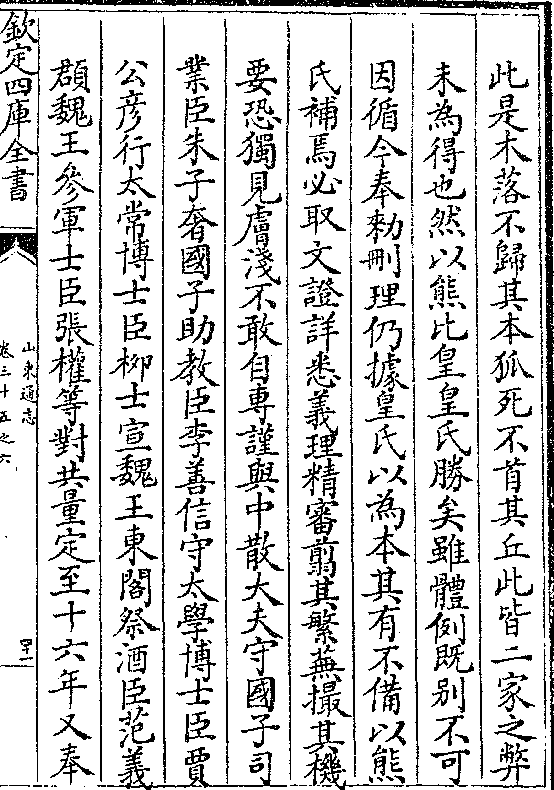 此是木落不歸其本狐死不首其丘此皆二家之弊
未為得也然以熊比皇皇氏勝矣雖體例既别不可
因循今奉勅刪理仍據皇氏以為本其有不備以熊
氏補焉必取文證詳悉義理精審翦其繁蕪撮其機
要恐獨見膚淺不敢自專謹與中散大夫守國子司
業臣朱子奢國子助教臣李善信守太學博士臣賈
公彥行太常博士臣柳士宣魏王東閣祭酒臣范義
頵魏王參軍士臣張權等對共量定至十六年又奉
欽定四庫全書
山東通志
卷三十五之六